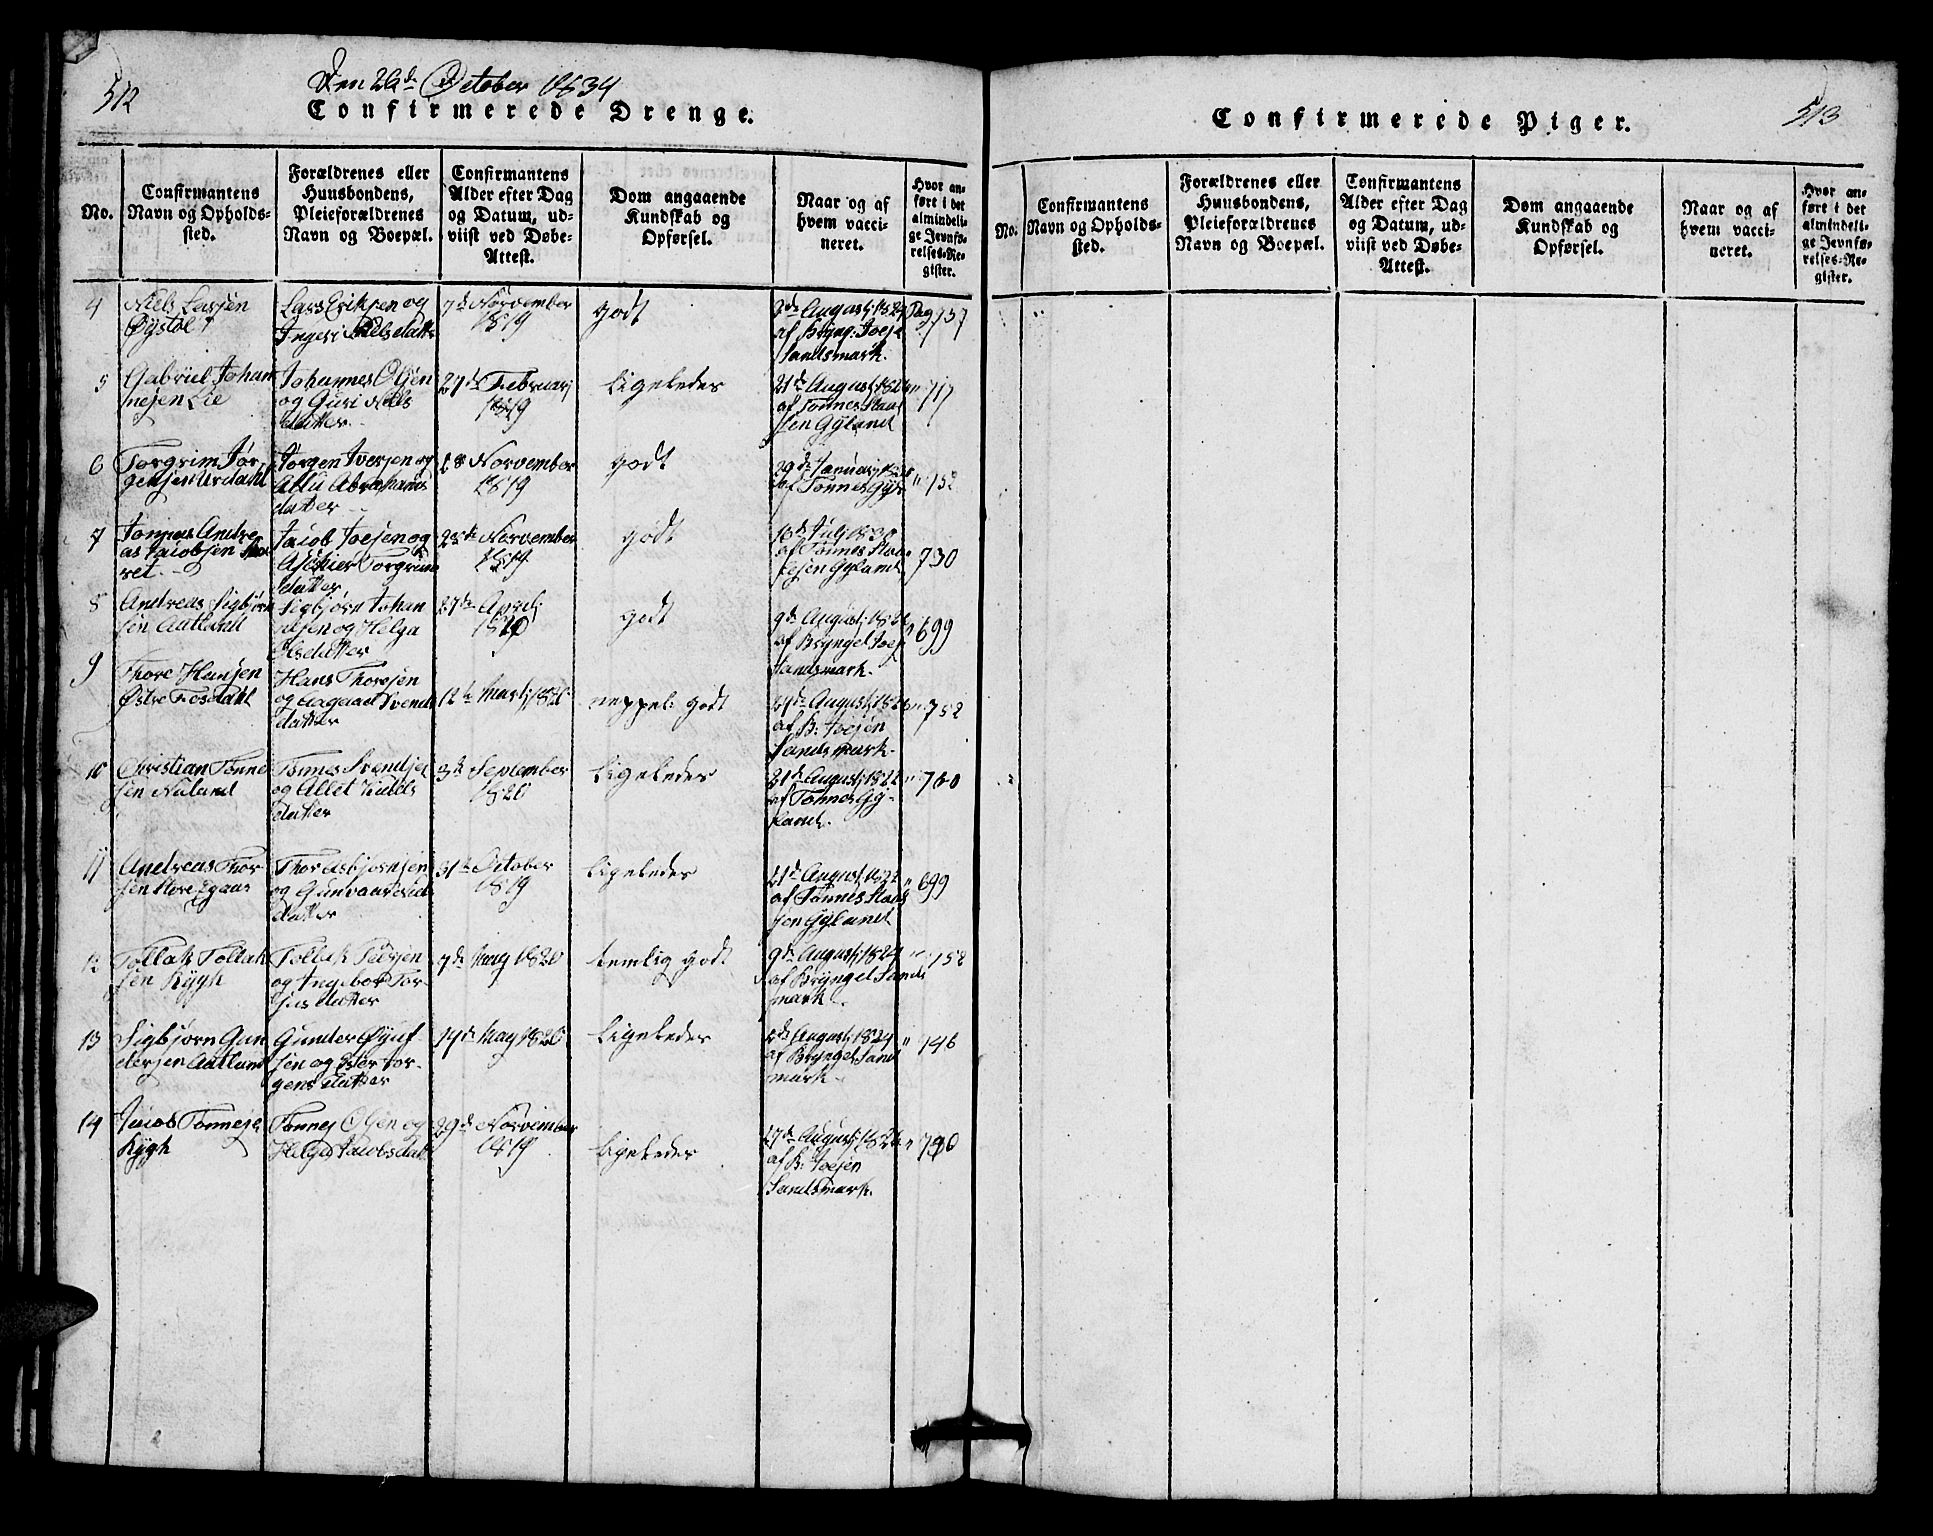 512
Den 26de October 1834
Confirmerede Drenge.
No.
Confirmantens
Navn og Opholds-
sted.
Forældrenes eller
Huusbondens,
Pleieforældrenes
Navn og Boepæl.
Confirmantens
Alder efter Dag
og Datum, ud-
viist ved Døbe-
Attest.
Dom angaaende
Kundskab og
Opførsel.
Naar og af
hvem vacci-
neret.
Hvor an-
ført i det
almindeli-
ge Jevnfø-
relses-Re-
gister.
4
Niels Larsen
Øystøl
Lars Eriksen og
Ingeri Nielsdatter
7de November
1819
godt
af Bryng. Joese
Sandsmark.
Pag 737
5
Gabriel Johan
nesen Lie
Johannes Olsen
og Guri Niels
datter
27de Februarj
1819
Ligeledes
21de Augustj
af Tønnes Staal
sen Gyland
" 717
6
Torgrim Jør
gensen Urdahl
Jørgen Iversen og
Abrahams
datter
18 November
1819
godt
29de Januarj
af Tønnes Gyl
" 752
7
Andre
as Jacobsen
ret.
Jacob Joesen og
Torgrims
datter
28de November
1819
godt
18de July 1830
af Tønnes Staa
lesen Gyland
" 730
8
Andreas Sigbjørn
sen Aatland
Sigbjørn Johan
nesen og Helga
Olsdatter
27de Aprilj
1819
godt
9de Augustj
af Bryngel Joes
Sandsmark.
" 699
9
Thore Hansen
Østre Fosdahl
Hans Thoresen
og Aagaat Svends
datter
12te Martj 1820
neppe godt
27de Augustj
af B. Joesen
Sandsmark.
" 752
10
Christian Tønne
sen Naland
Tønnes Svendsen
og Allet Niels
datter
3de September
1820
Ligeledes
21de Augustj
af Tønnes Gy-
land.
" 760
11
Andreas Thor
sen Store Egaas
Thor Asbjørnsen
og Gunvaar
datter
31te October
1819
Ligeledes
21de Augustj
af Tønnes Staal
sen Gyland
" 699
12
Tollak Tollak
sen Rygh
Tollak
og Ingebor Tor-
jusdatter
7de May 1820
temlig godt
9de Augustj 1824
af Bryngel Sands
mark
" 752
13
Sigbjørn Gun
dersen Aatland
Gunder Øyuf-
sen og Jør-
gensdatter
14de May 1820
Ligeledes
2de Augustj 1824
af Bryngel Sands
mark.
" 746
14
Jacob Tønnese
Rygh
Tønnes Olsen og
Helga Jacobsdatt
29de November
1819
Ligeledes
27de Augustj
af B. Joesen
Sandsmark.
"
513
Confirmerede Piger.
No.
Confirmantens
Navn og Opholds-
sted.
Forældrenes eller
Huusbondens,
Pleieforældrenes
Navn og Boepæl.
Confirmantens
Alder efter Dag
og Datum, ud-
viist ved Døbe-
Attest.
Dom angaaende
Kundskab og
Opførsel.
Naar og af
hvem vacci-
neret.
Hvor an-
ført i det
almindeli-
ge Jevnfø-
relses-Re-
gister.